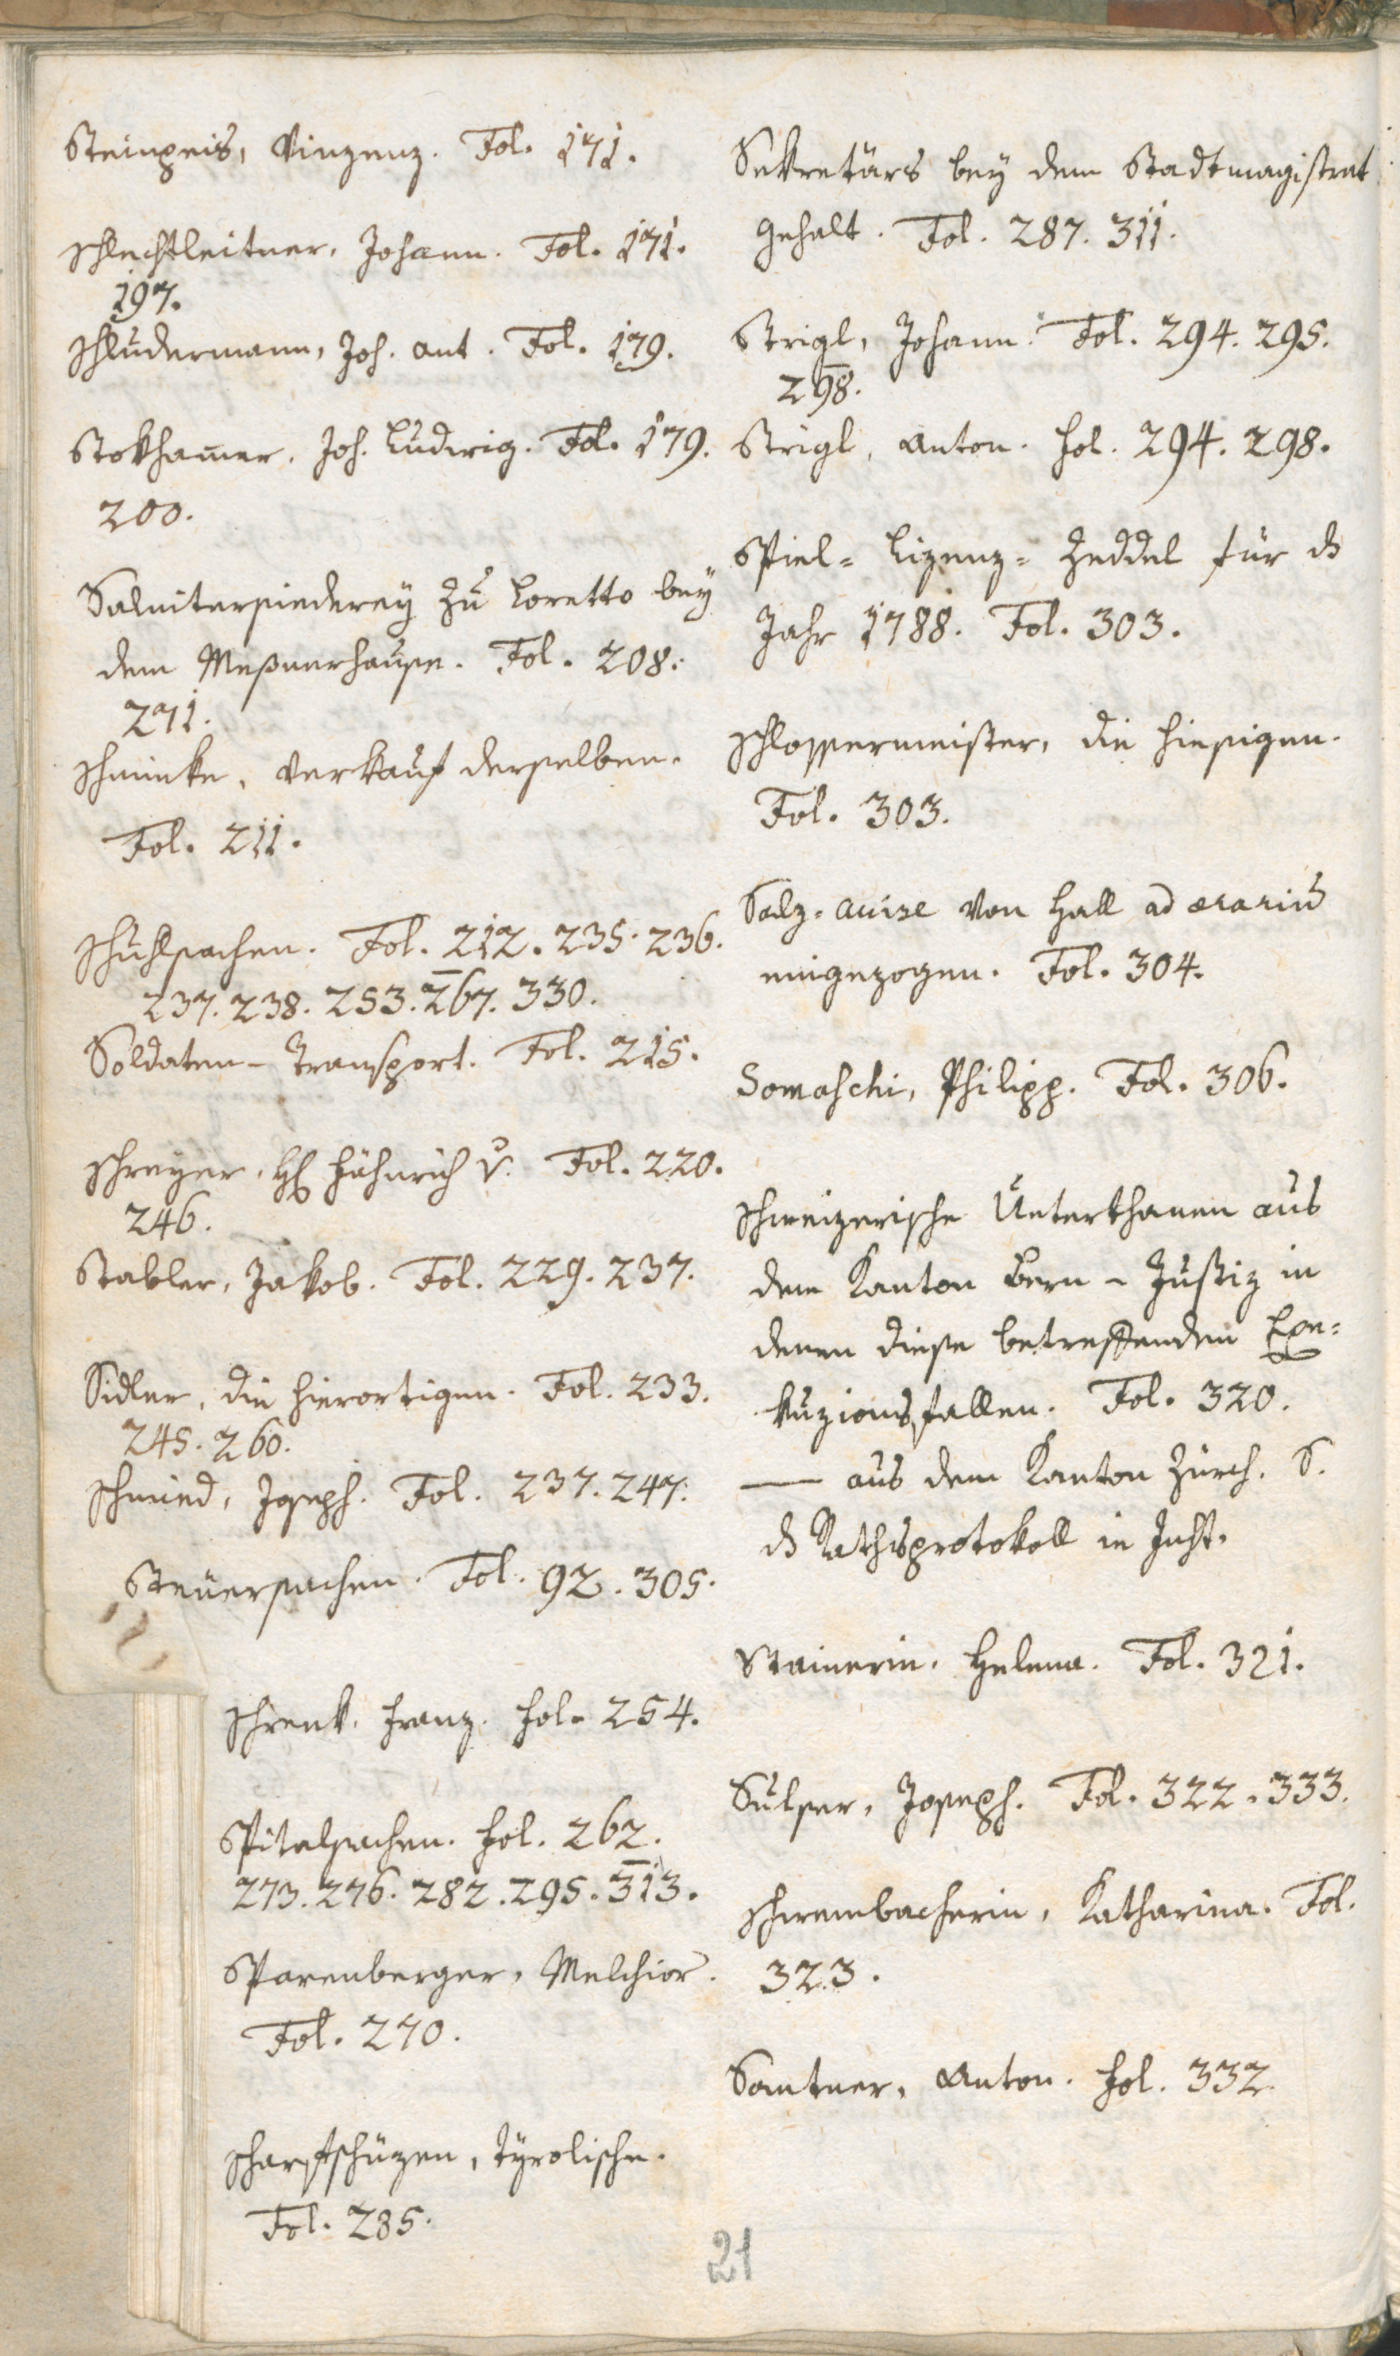 Steinpeis, Vinzenz. Fol. 171.
Schlechtleitner, Johann. Fol. 171.
197.
Schludermann, Joh. Ant. Fol. 179.
Stokham̅er, Joh. Ludwig. Fol. 179.
200.
Saliniterssiederey zu Loretto bey
dem Meßnerhause. Fol. 208.
271.
Schminke, Verkauf derselben.
Fol. 211.
Schuhlsachen. Fol. 212. 235. 236.
237. 238. 253. 267. 330.
Soldaten-Transport. Fol. 215.
Schreyer, H. Fähnrich v. Fol. 220.
246.
Stabler, Jakob. Fol. 229. 237.
Sidler, die hierortigen. Fol. 233.
245. 260.
Schmied, Joseph. Fol. 237. 247.
Steuersachen. Fol. 92. 305.
Schrenk, Franz. Fol. 254.
Spitalsachen. Fol. 262.
273. 276. 282. 295. 313.
Sparenberger, Melchior.
Fol. 270.
Scharfschüzen, Tyrolische.
Fol. 285.
Sekretärs bey dem Stadtmagistrat
Gehalt. Fol. 287. 311.
Strigl, Johann. Fol. 294. 295.
298.
Strigl, Anton. Fol. 294. 298.
Spiel= Lizenz= Zeddel für ds
Jahr 1788. Fol. 303.
Schlossermeister, die hiesigen.
Fol. 303.
Salz= Accise von Hall ad ærariu̅
eingezogen. Fol. 304.
Somaschi, Philipp. Fol. 306.
Schweizerische Unterthanen aus
dem Kanton Bern - Justiz in
denen diese betreffenden Exe=
kuzionsfällen. Fol. 320.
— aus dem Kanton Zürch. S.
ds Rathsprotokoll in Just.
Stainerin, Helena. Fol. 321.
Sulser, Joseph. Fol. 322. 333.
Schrembacherin, Katharina. Fol.
323.
Santner, Anton. Fol. 332.
21